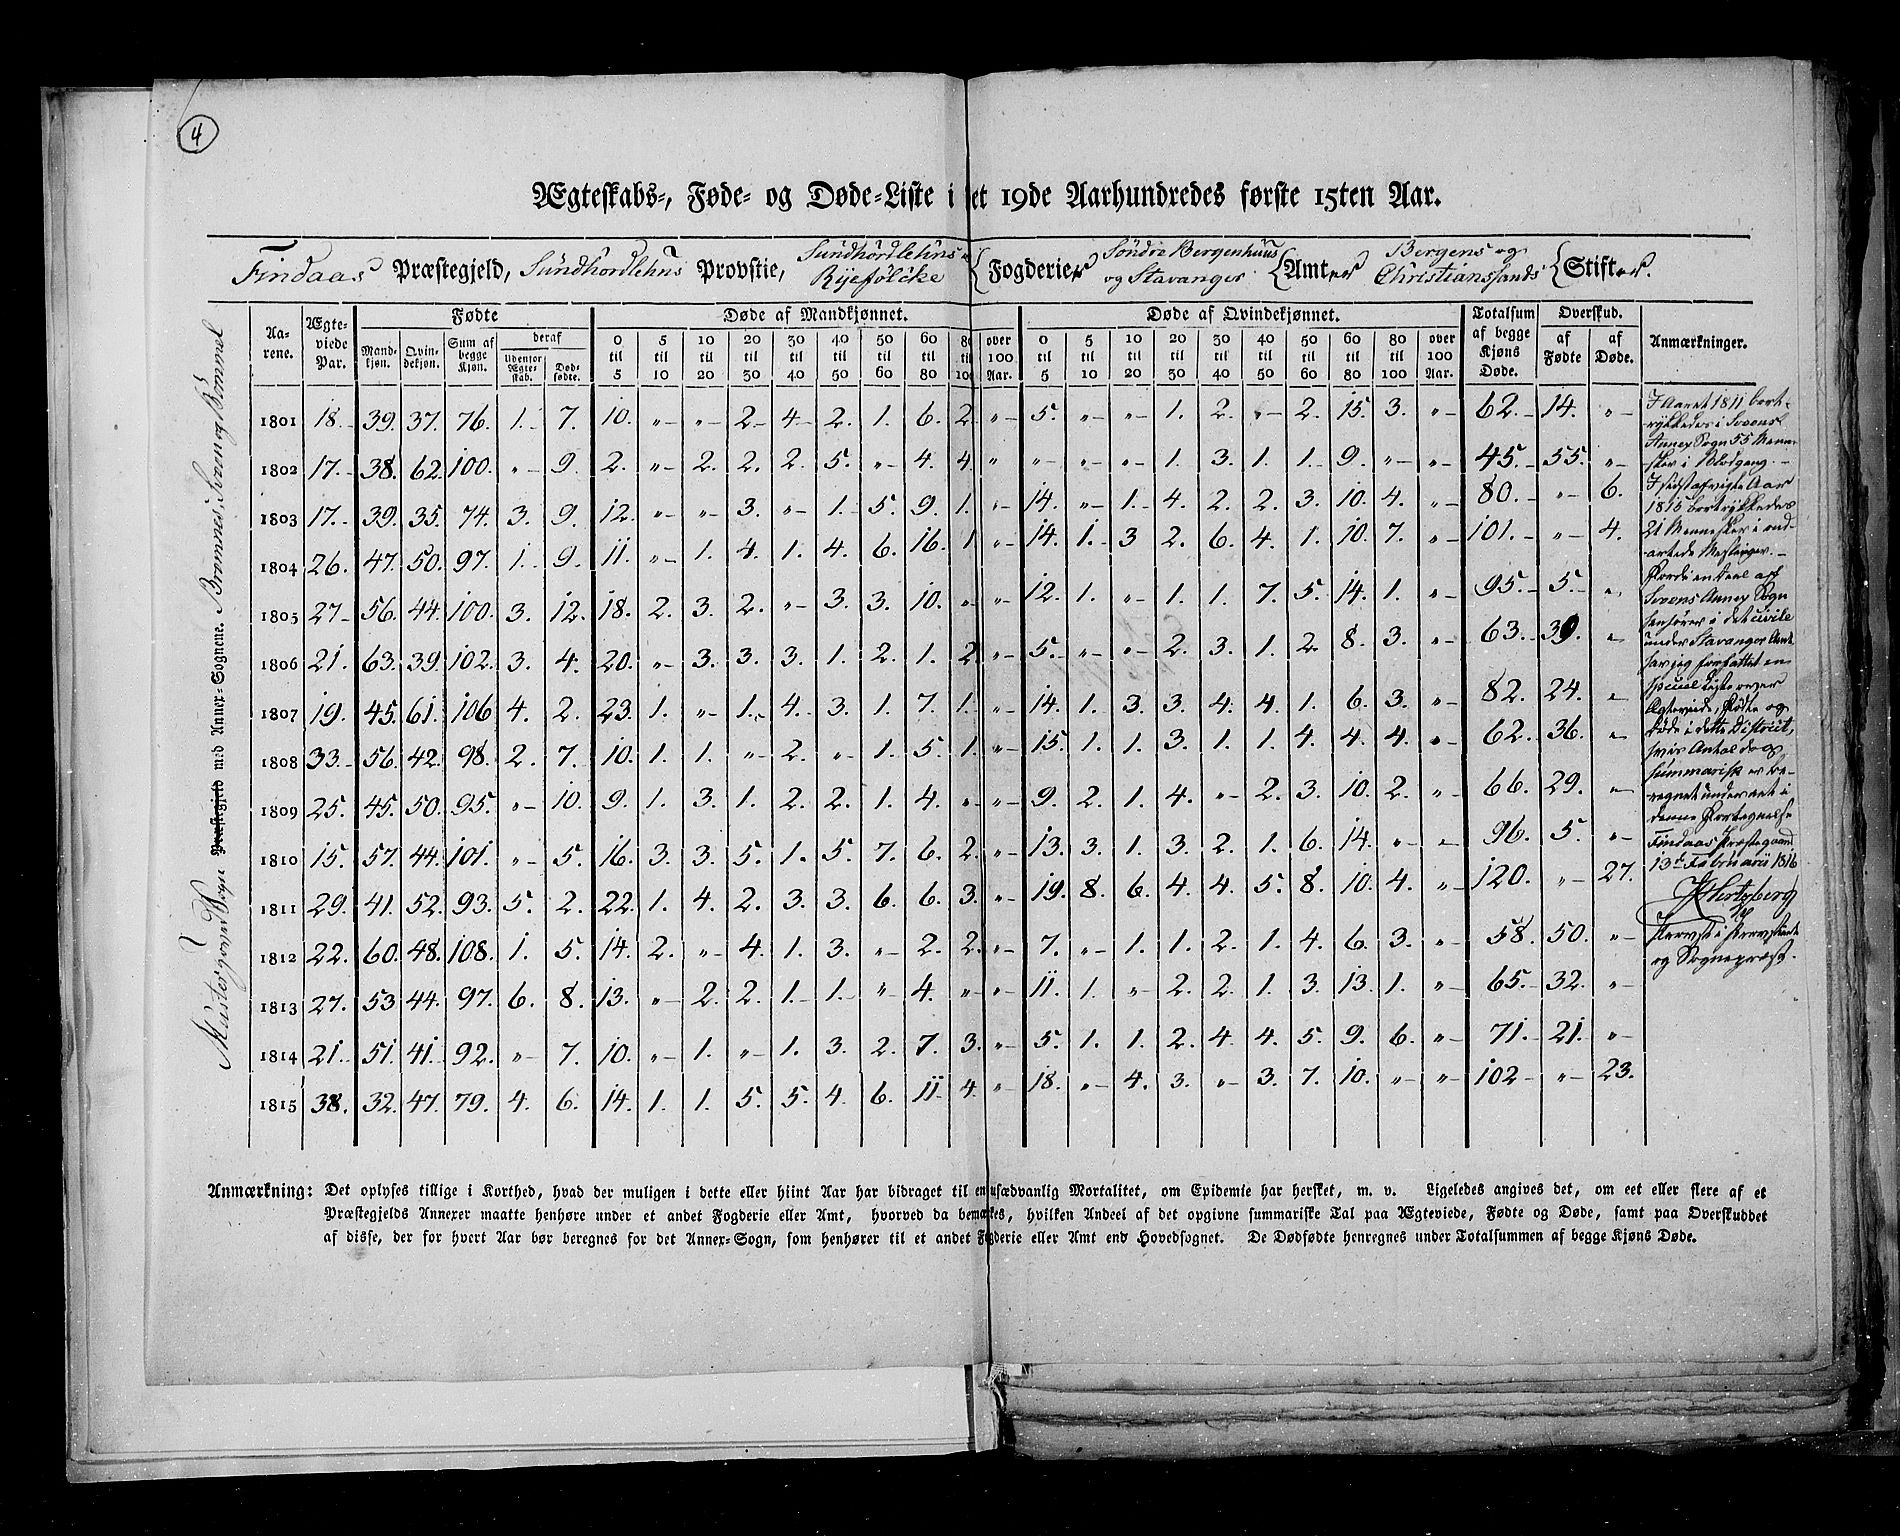 4
Ægteskabs-, Føde- og Døde-Liste i et 19de Aarhundredes første 15ten Aar.
Findaas Præstegjeld, Sundhordlehns Provstie, Sundhordlehns og Ryefolcke Fogderier Søndre Bergenhuus og Stavanger Amter Bergens og Christianssands Stifter.
Mustergovne Sogn Præstegjeld med Annex-Sognene. Bremnes, Sveen og Bømmel
Aarene. Ægteviede Par. Fødte Døde af Mandkjønnet. Døde af Qvindekjønnet. Totalsum af begge Kjøns Døde. Overskud. Anmærkninger.
Mandkjøn. Qvindekjøn. Sum af begge Kjøn. deraf Udenfor Ægteskab. Dødfødte. 0 til 5 5 til 10 10 til 20 20 til 30 30 til 40 40 til 50 50 til 60 60 til 80 80 til 100 over 100 Aar. 0 til 5 5 til 10 10 til 20 20 til 30 30 til 40 40 til 50 50 til 60 60 til 80 80 til 100 over 100 Aar. af Fødte af Døde.
1801 18. 39. 37. 76. 1. 7. 10. " " 2. 4. 2. 1. 6. 2. " 5. " " 1. 2. " 2. 15. 3. " 62. 14. "
1802 17. 38. 62. 100. " 9. 2. " 2. 2. 2. 5. " 4. 4. " " " " 1. 3. 1. 1. 9. " " 45. 55. "
1803 17. 39. 35. 74. 3. 9. 12. " " 3. " 1. 5. 9. 1. " 14. " 1. 4. 2. 2. 3. 10. 4. " 80. " 6.
1804 26. 47. 50. 97. 1. 9. 11. " 1. 4. 1. 4. 6. 16. 1 " 14. 1. 3 2. 6. 4. 1. 10. 7. " 101. " 4.
1805 27 56. 44. 100. 3. 12. 18. 2. 3. 2. " 3. 3. 10. " " 12. 1. " 1. 1. 7. 5. 14. 1. " 95. 5. "
1806 21. 63. 39. 102. 3. 4. 20. " 3. 3. 3. 1. 2. 1. 2. " 5. " " 2. 3. 1. 2. 8. 3. " 63. 39. "
1807 19. 45. 61. 106 4. 2. 23. 1. " 1. 4. 3. 1. 7. 1. " 14. 1. 3. 3. 4. 4. 1. 6. 3. " 82. 24. "
1808 33. 56. 42. 98. 2. 7. 10. 1. 1. " 2. " 1. 5. 1. " 15. 1. 1. 3. 1. 1. 4. 4. 4. " 62. 36. "
1809 25. 45. 50. 95. " 10. 9. 1. 3. 1. 2. 2. 1. 4. " " 9. 2. 1. 4. " 2. 3. 10. 2. " 66. 29. "
1810 15. 57. 44. 101. " 5. 16. 3. 3. 5. 1. 5. 7. 6. 2. " 13. 3. 1. 3. 2. 1. 6. 14. " " 96. 5. "
1811 29. 41. 52. 93. 5. 2. 22. 1. 4. 2. 3. 3. 6. 6. 3. " 19. 8. 6. 4. 4. 5. 8. 10. 4. " 120. " 27.
1812 22. 60. 48. 108. 1. 5. 14. 2. " 4. 1. 3. " 2. 2. " 7. " 1. 1. 2. 1. 4. 6. 3. " 58. 50. "
1813 27. 53 44. 97. 6. 8. 13. " 2. 2. 1. 1. " 4. " " 11. 1. " 2. 2. 1. 3. 13. 1. " 65. 32. "
1814 21. 51. 41. 92. " 7. 10. " 1. " 1. 3. 2. 7. 3. " 5. 1. 1. 2. 4. 4. 5. 9. 6. " 71. 21. "
1815 38. 32. 47. 79. 4. 6. 14. 1. 1. 5. 5. 4. 6. 11 4. " 18. " 4. 3. " 3. 7. 10. " " 102 " 23.
I Aaret 1811 bort-
rykkedes i Sveens
Annex Sogn 55 Menne-
sker i Blodgang. -
I sidstafvigte Aar
1815 bortrykkedes
21 Mennesker i ond-
artede Meslinger. -
Fordi en Deel af
Sveens Annex Sogn
henhører i det civile
under Stavanger Amt
har jeg forfattet en
special Liste over
Ægteviede, Fødte og
Døde i dette District,
hvis Antal dog
summarisk er be-
regnet under eet i
denne Fortegnelse
Findaas Præstegaard
13de Februarii 1816
Hertzberg
Provst i Provstiet
og Sognepræst.
Anmærkning: Det oplyses tillige i Korthed, hvad der muligen i dette eller hiint Aar har bidraget til en usædvanlig Mortalitet, om Epidemie har hersket, m. v. Ligeledes angives det, om eet eller flere af et
Præstegjelds Annexer maatte henhøre under et andet Fogderie eller Amt, hvorved da bemærkes, hvilken Andeel af det opgivne summariske Tal paa Ægteviede, Fødte og Døde, samt paa Overskuddet
af disse, der for hvert Aar bør beregnes for det Annex-Sogn, som henhører til et andet Fogderie eller Amt end Hovedsognet. De Dødfødte henregnes under Totalsummen af begge Kjøns Døde.